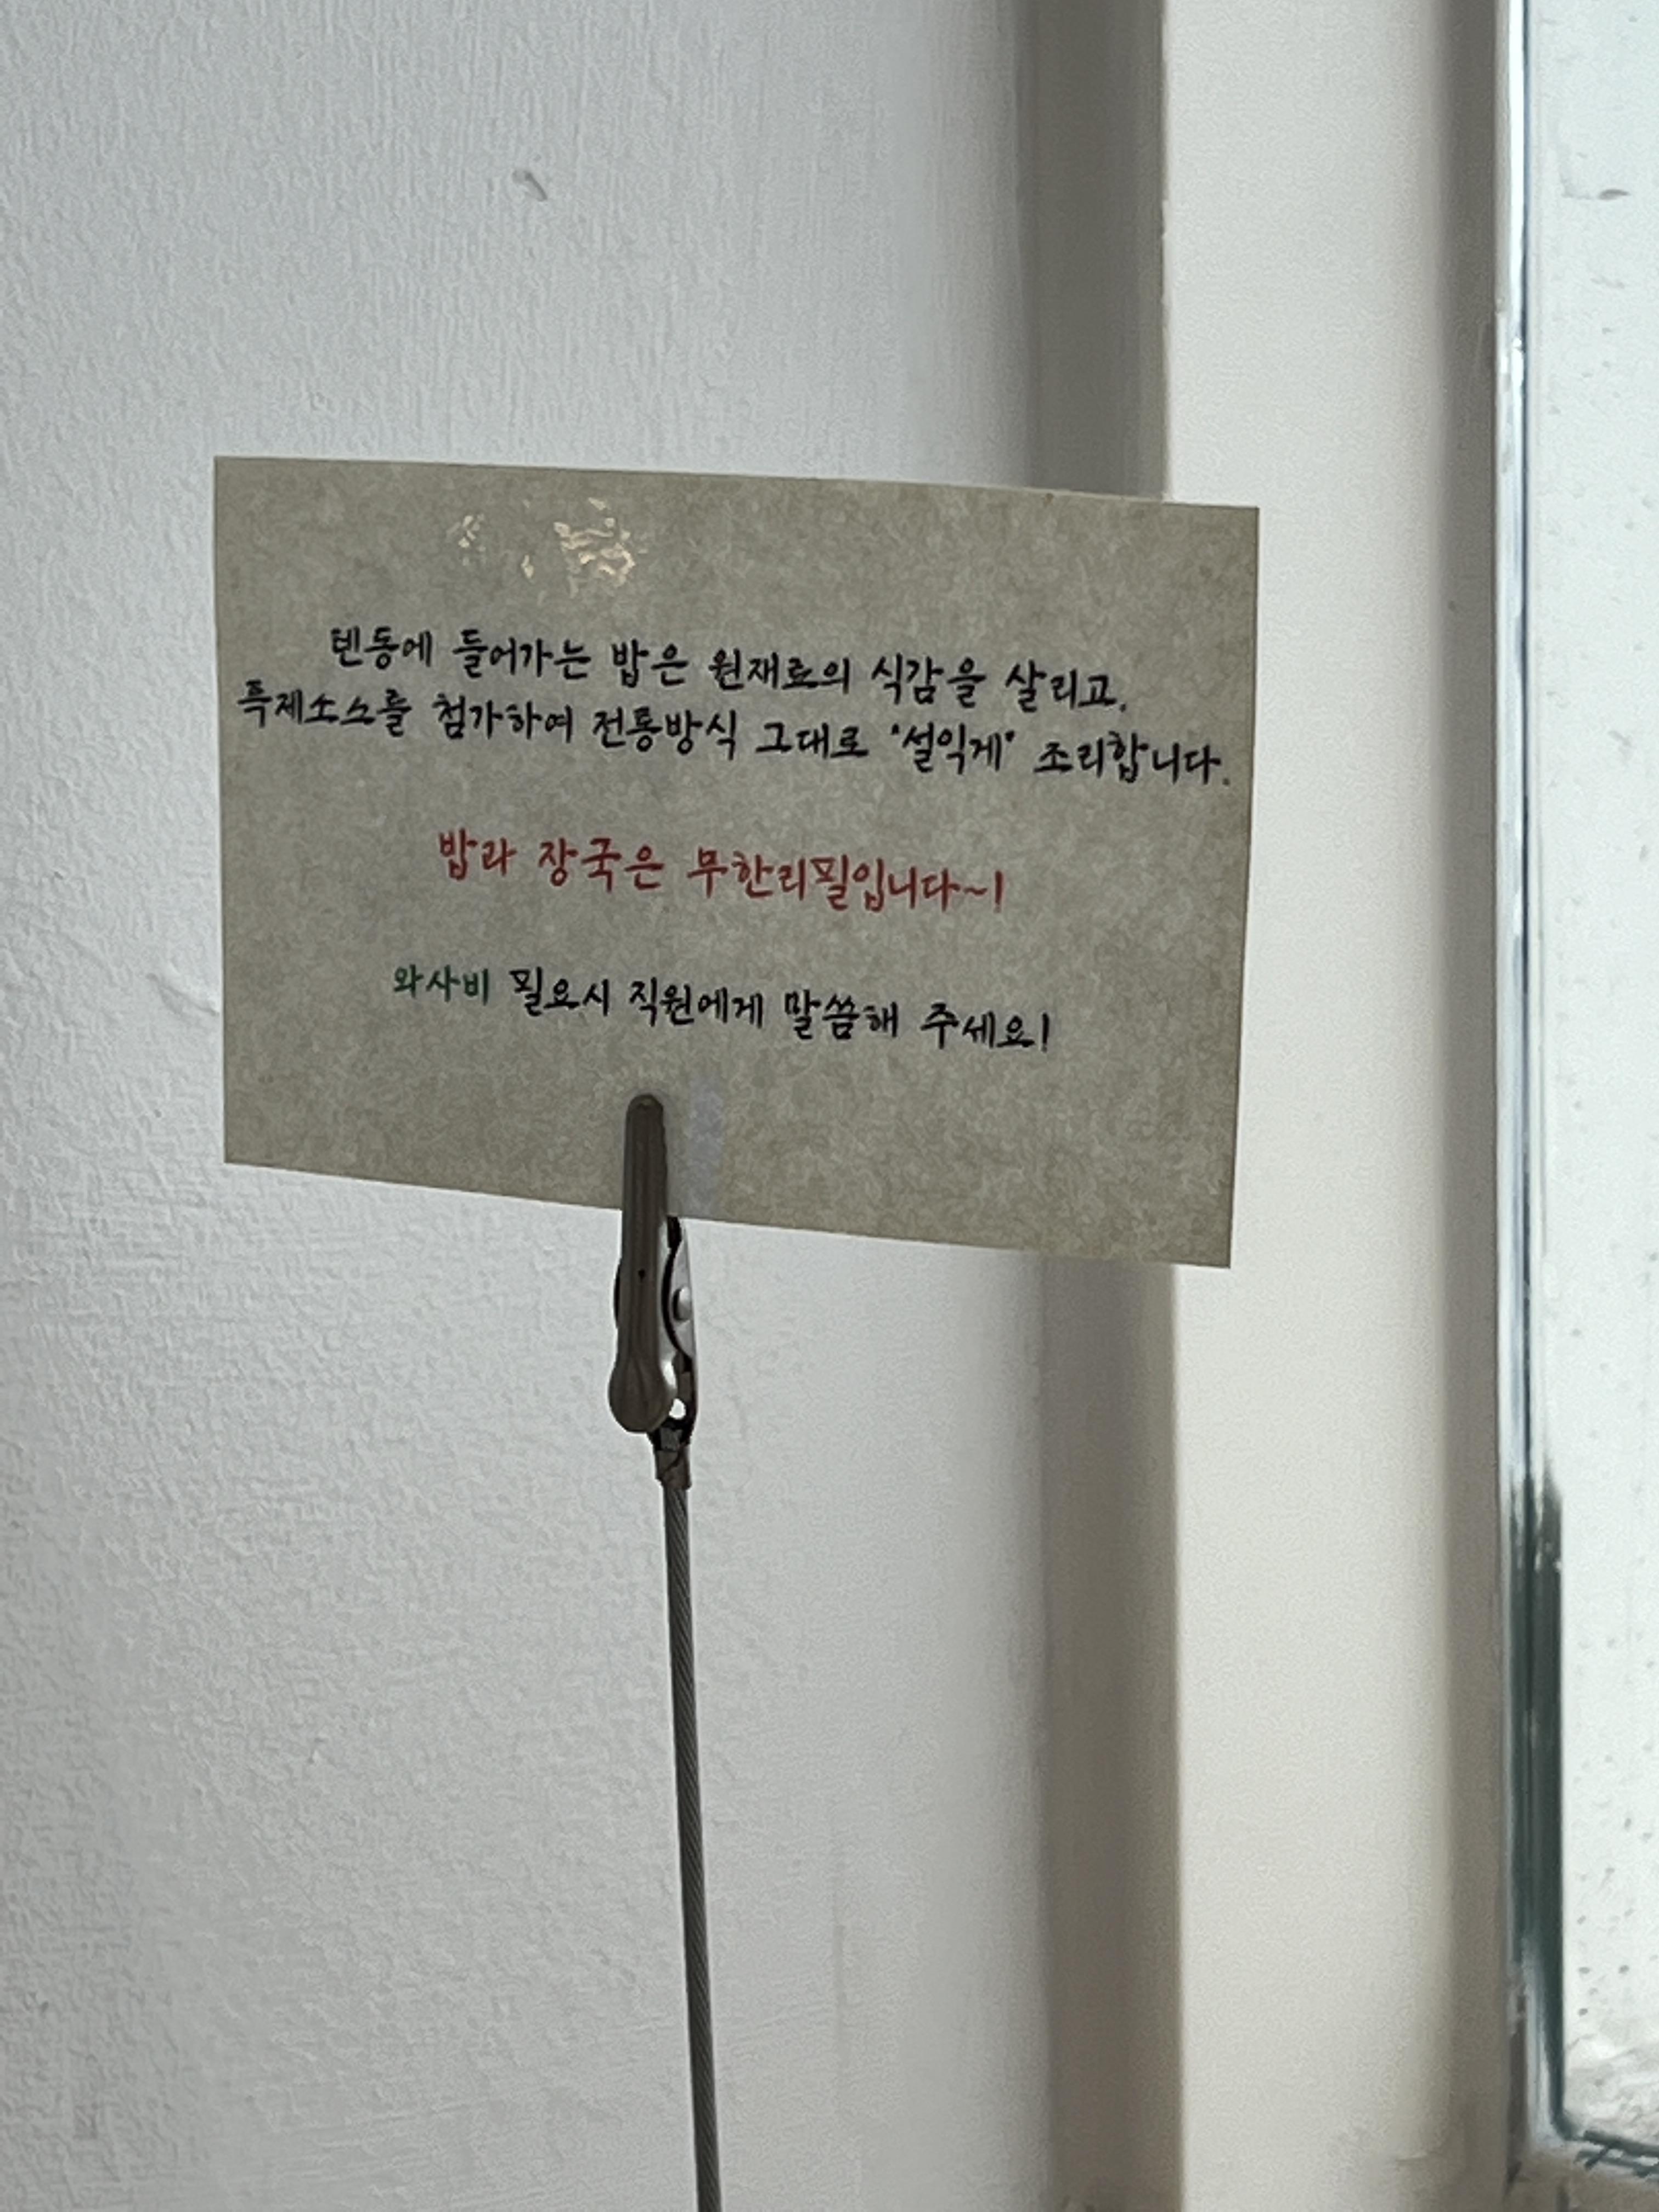 텐동에 들어가는 밥은 원재료의 식감을 살리고,
특제소스를 첨가하여 전통방식 그대로 "설익게" 조리합니다.
밥과 장국은 무한리필입니다~!
와사비 필요시 직원에게 말씀해 주세요!